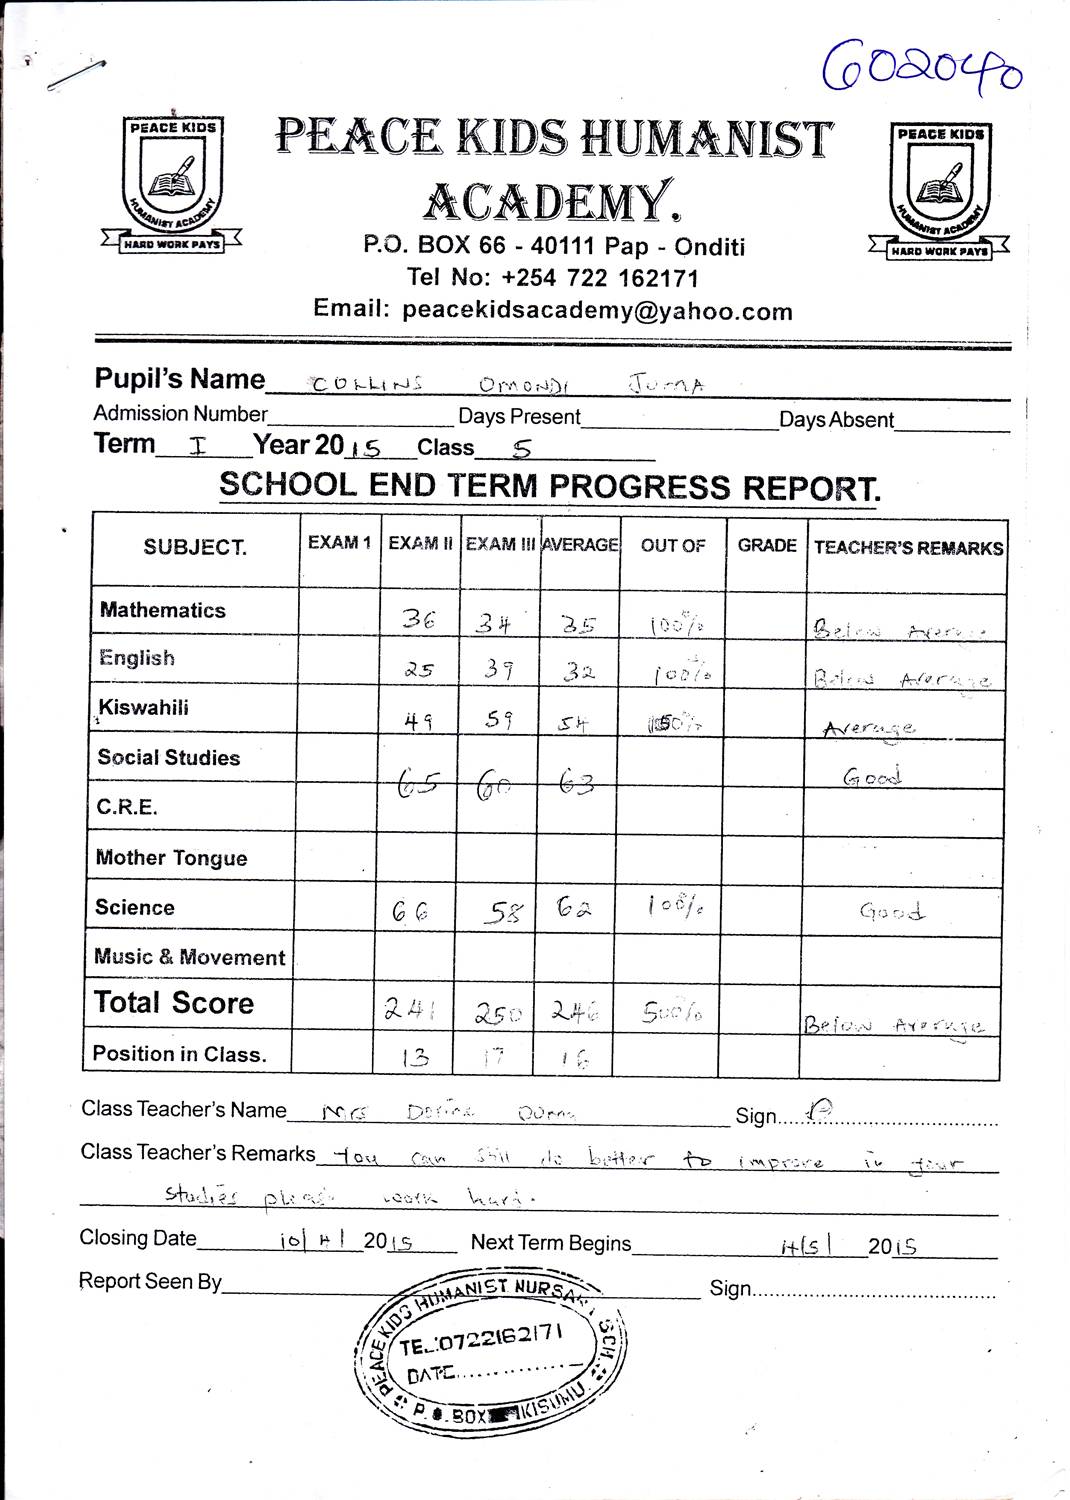 602040
PEACE KIDS
HUMANIST ACADEMY
HARD WORK PAYS
PEACE KIDS HUMANIST
ACADEMY.
P.O. BOX 66 - 40111 Pap - Onditi
Tel No: +254 722 162171
Email: peacekidsacademy@yahoo.com
PEACE KIDS
HUMANIST ACADEMY
HARD WORK PAYS
Pupil's Name COLLINS OMONDI JUMA
Admission Number Days Present Days Absent
Term I Year 2015 Class 5
SCHOOL END TERM PROGRESS REPORT.
SUBJECT. EXAM 1 EXAM II EXAM III AVERAGE OUT OF GRADE TEACHER'S REMARKS
Mathematics 36 34 35 100% Below Average
English 25 39 32 100% Below Average
Kiswahili 49 59 54 Average
Social Studies 65 60 63 Good
C.R.E.
Mother Tongue
Science 66 58 62 100% Good
Music & Movement
Total Score 241 250 246 500% Below Average
Position in Class. 13 17 16
Class Teacher's Name Mrs Sign....
Class Teacher's Remarks You can still do better to improve in your
studies please work hard.
Closing Date 10/4/2015 Next Term Begins 4/5/2015
Report Seen By Sign....
PEACE KIDS HUMANIST NURSARY SCH.
TEL:0722162171
DATE..............
P.O.BOX KISUMU.